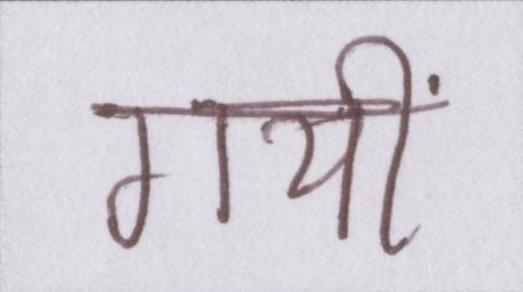 गयीं